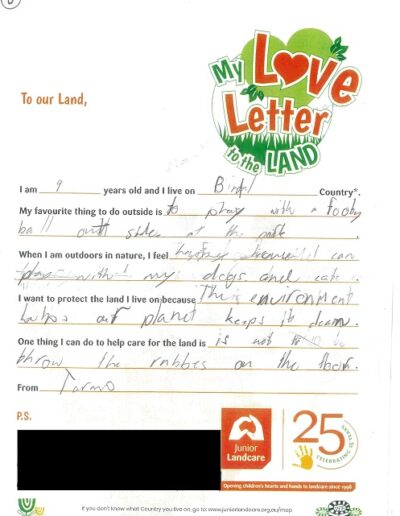 My Love
Letter
to the LAND
To our Land,
I am 9 years old and I live on Country*.
My favourite thing to do outside is to play with a footy
ball outt side at the park.
When I am outdoors in nature, I feel happy because I can
play with my dogs and cats.
I want to protect the land I live on because This environment
our planet keeps it clean.
One thing I can do to help care for the land is is not to
throw the rubbes on the floor.
From
P.S.
Junior
Landcare
25 YEARS
CELEBRATING
Opening children's hearts and hands to landcare since 1998
If you don't know what Country you live on, go to: www.juniorlandcare.org.au/map